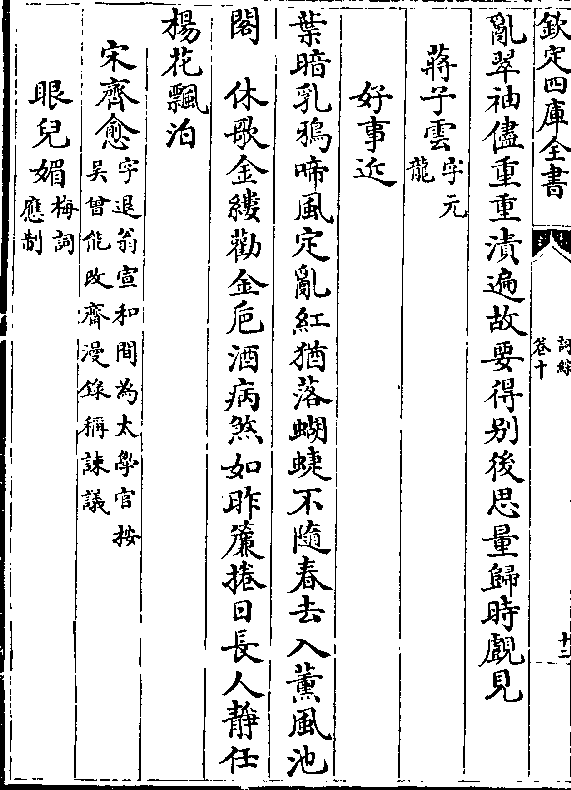 欽定四庫全書
詞綜
卷十
十二
亂翠袖儘重重漬遍故要得别後思量歸時覷見
蔣子雲字元
龍
好事近
葉暗乳鴉啼風定亂紅猶落蝴蝶不隨春去入薰風池
閣　休歌金縷勸金巵酒病煞如昨簾捲日長人靜任
楊花飄泊
宋齊愈字退翁宣和間為太學官按
吴曾能改齋漫錄稱諫議
眼兒媚梅詞
應制